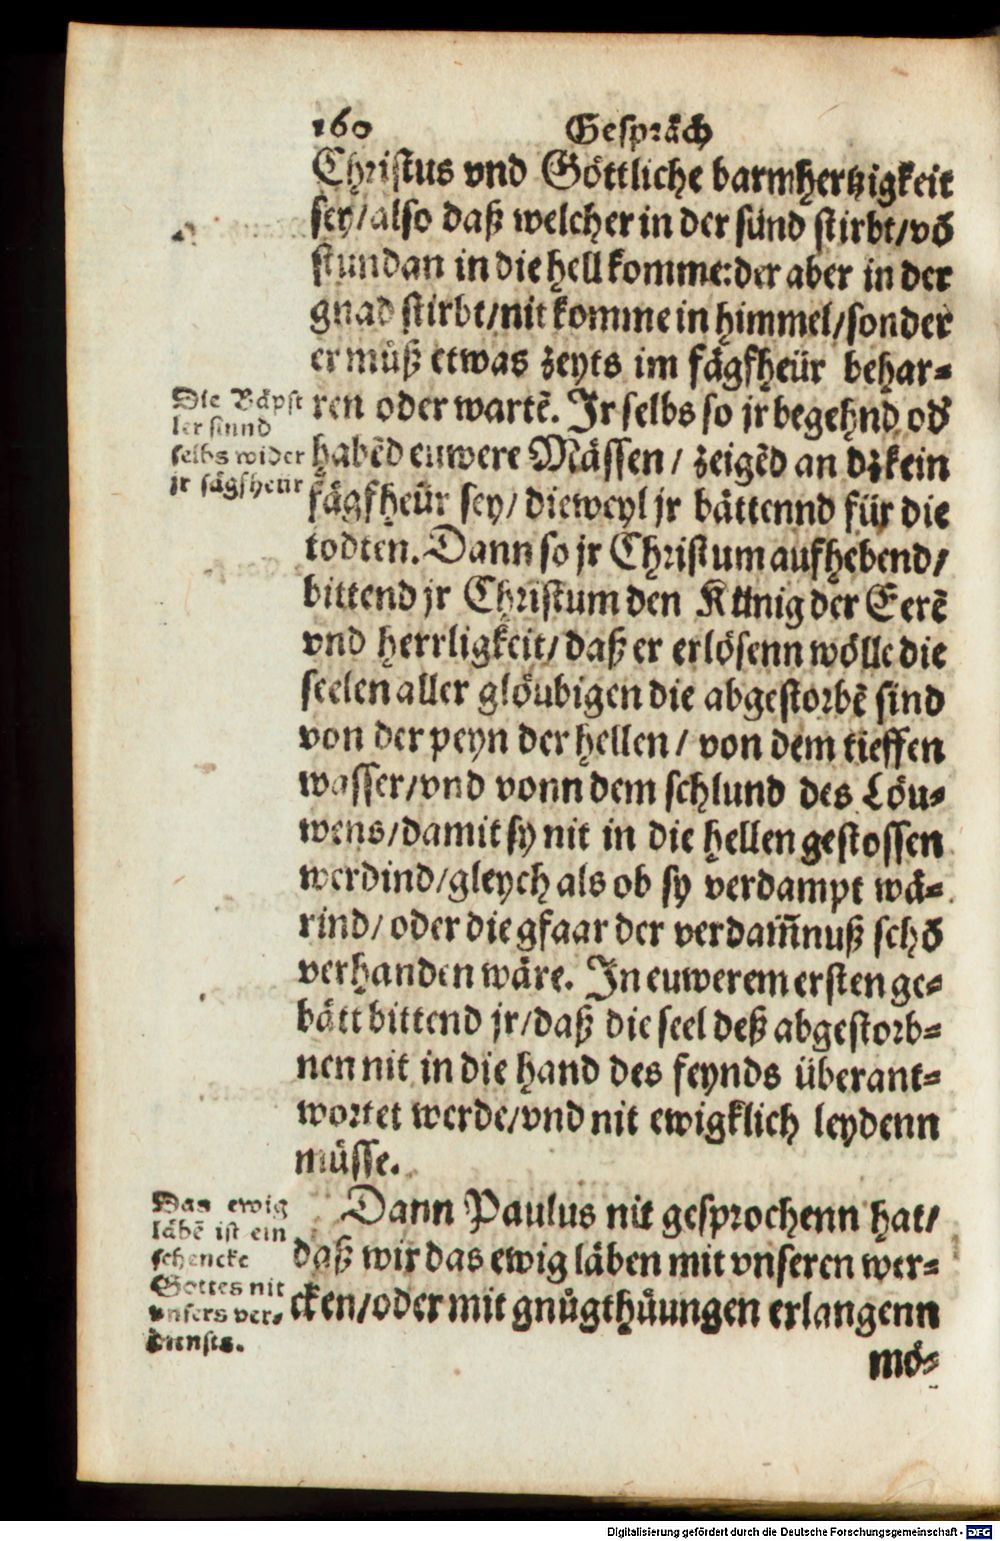 160 Gespräch
Christus vnd Göttliche barmhertzigkeit
sey/also daß welcher in der sünd stirbt/võ
stundan in die hell komme:der aber in der
gnad stirbt/nit komme in himmel/sonder
er müß etwas zeyts im fägfheür behar⸗
ren oder wartẽ. Jr selbs so jr begehnd od̕
habẽd euwere Mässen/ zeigẽd an dz kein
fägfheür sey/ dieweyl jr bättennd für die
todten. Dann so jr Christum aufhebend/
bittend jr Christum den Künig der Eerẽ
vnd herrligkeit/daß er erlösenn wölle die
seelen aller glöubigen die abgestorbẽ sind
von der peyn der hellen/ von dem tieffen
wasser/vnd vonn dem schlund des Löu⸗
wens/damit sy nit in die hellen gestossen
werdind/gleych als ob sy verdampt wä⸗
rind/ oder die gfaar der verdam̃nuß schõ
verhanden wäre. Jn euwerem ersten ge⸗
bätt bittend jr/daß die seel deß abgestorb⸗
nen nit in die hand des feynds überant⸗
wortet werde/vnd nit ewigklich leydenn
müsse.
Dann Paulus nit gesprochenn hat/
daß wir das ewig läben mit vnseren wer⸗
cken/oder mit gnůgthůungen erlangenn
mö⸗
Die Bäpst
ler sinnd
selbs wider
jr fägfheür
Das ewig
läbẽ ist ein
schencke
Gottes nit
vnsers ver⸗
diensts.
Digitalisierung gefördert durch die Deutsche Forschungsgemeinschaft - DFG